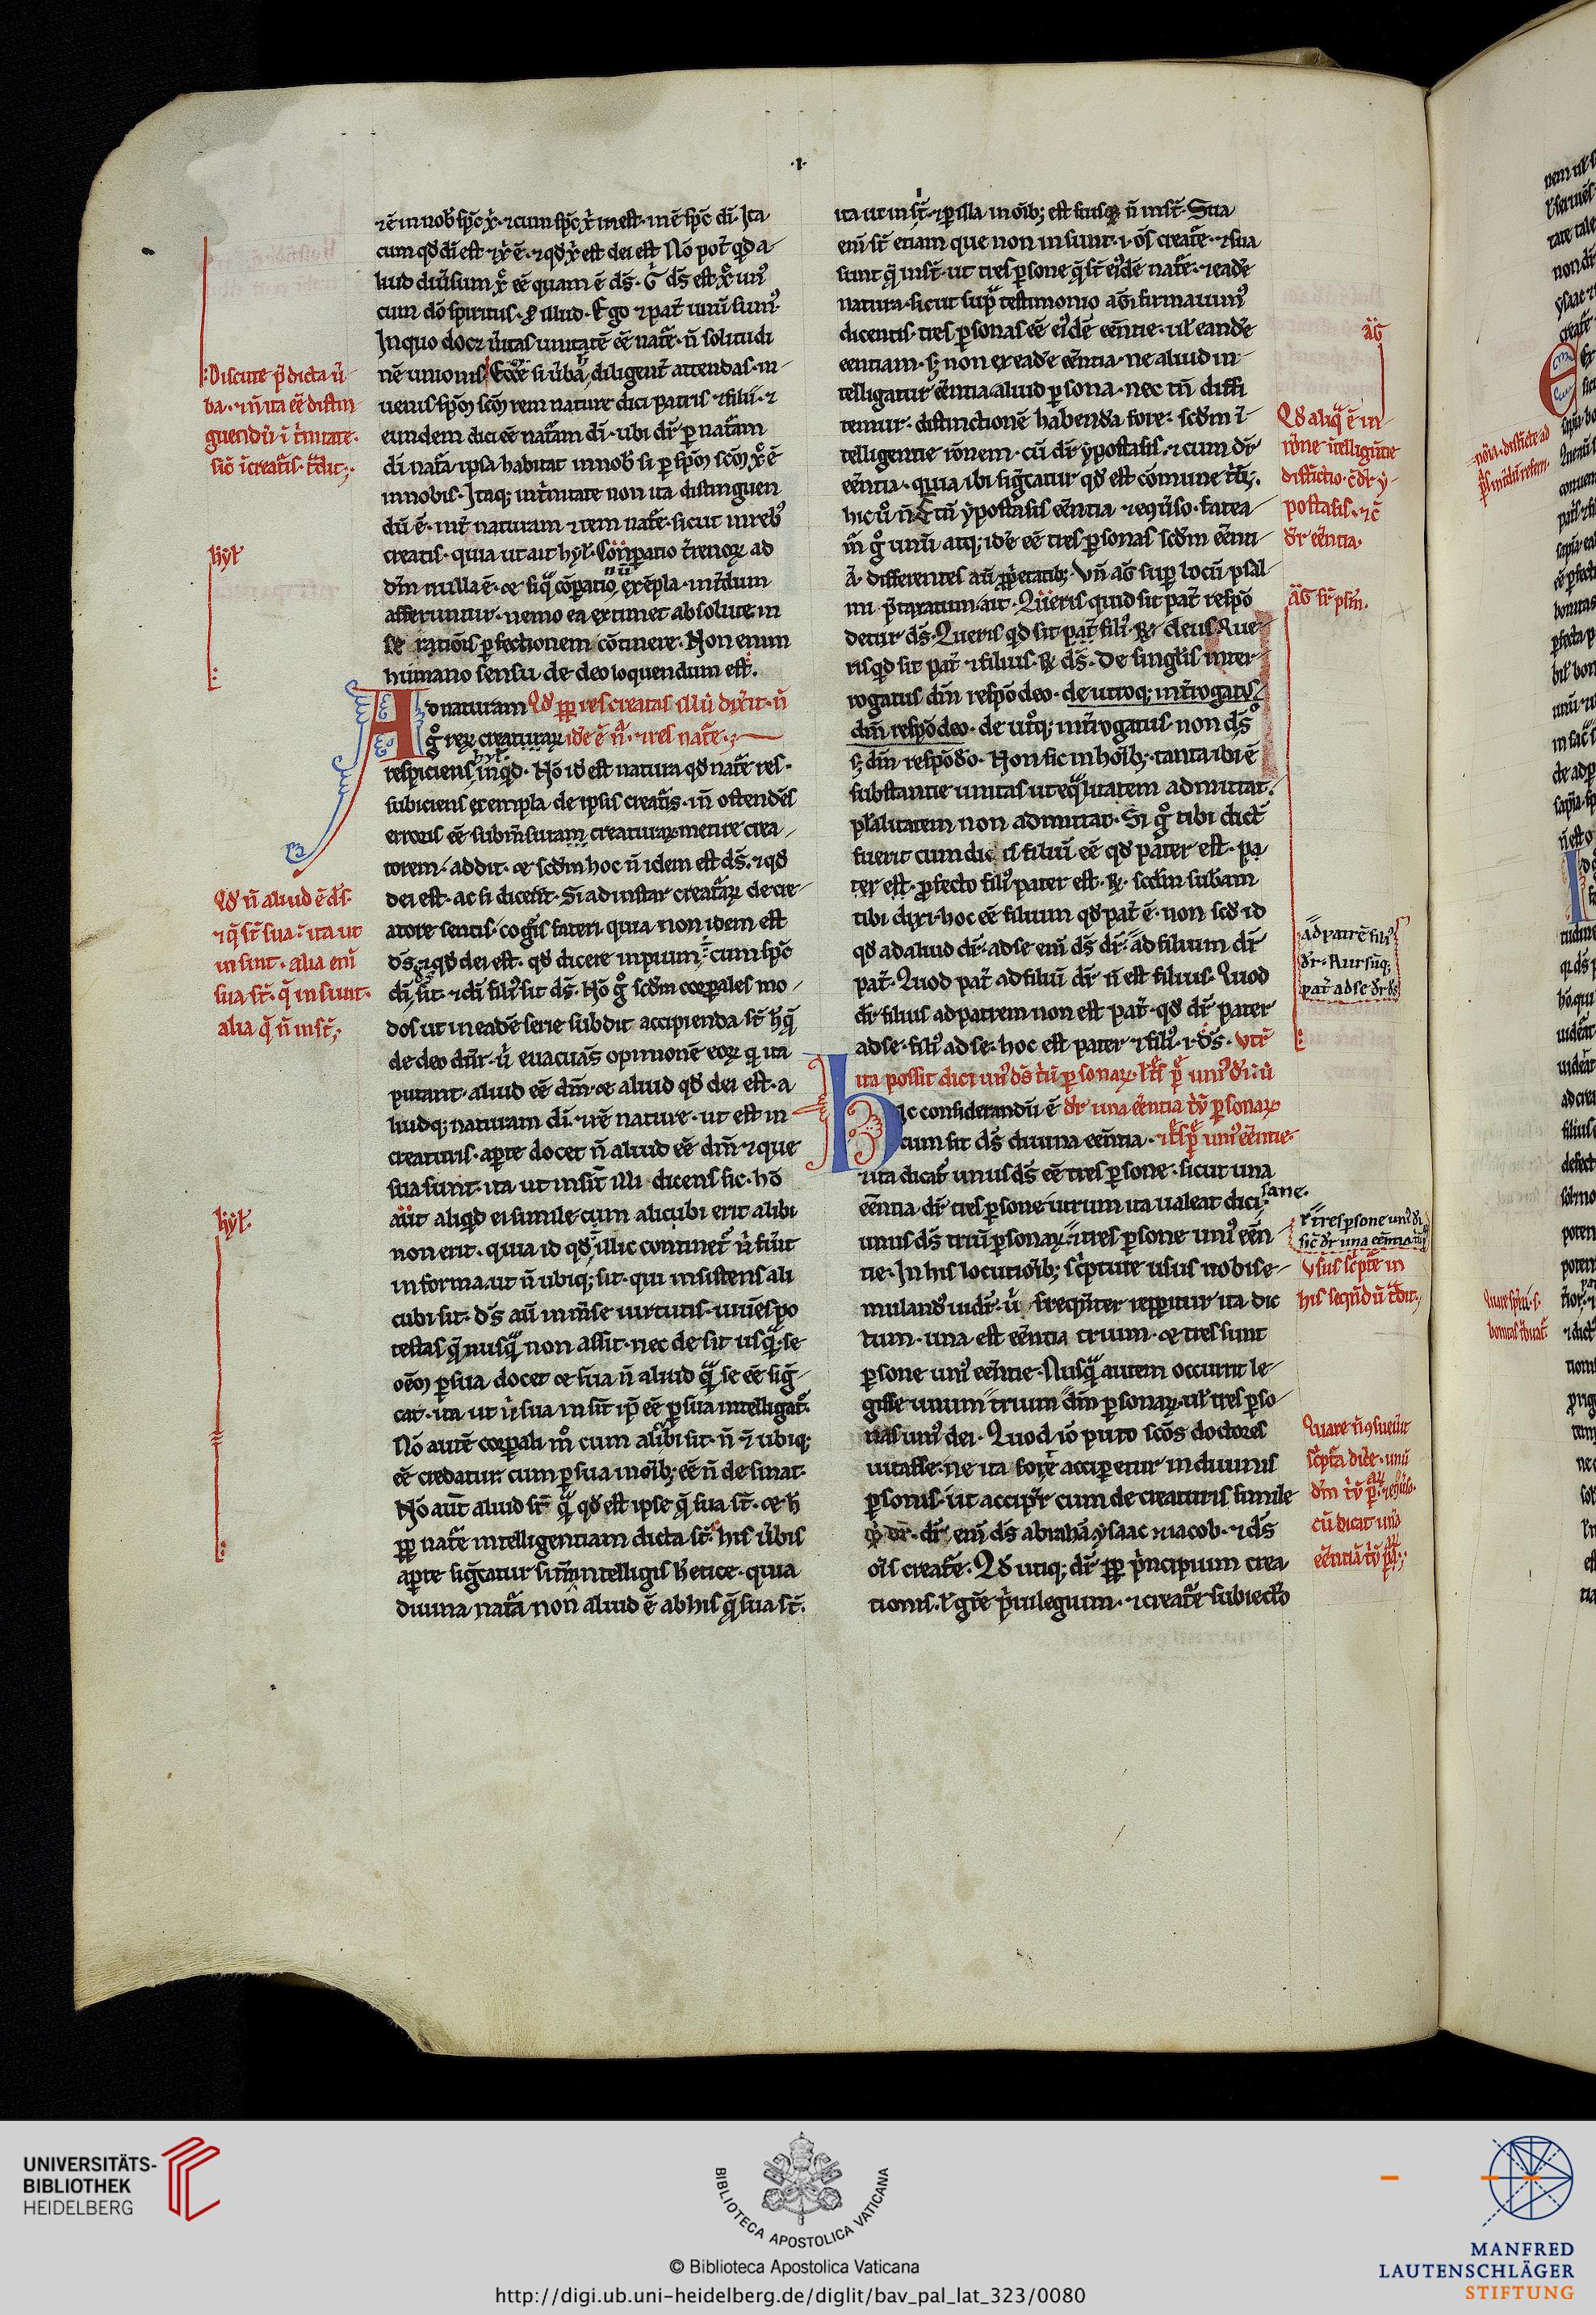 ·I·
⁊ē in nob̄ sp̄c x̄·⁊ cum sp̄c x̄ in est·in ē sp̄c dī·Ita
cum qd̄ dī est ⁊ x̄ ē·⁊ qd̄ x̄ est dei est Nō pot̄ qͥd a-
liud
cum dō spiritus· illud·Ego ⁊ pat̄ unū sumꝰ
In quo docꝫ ūitas unitatē eē nat̄e·n̄ solitudi
nē unionis Ecce si ūba diligent̄ attendas·in-
uenis sp̄m sc̄m rem nature dici patris ⁊ filii·⁊
eundem dici eē nat̄am dī·ubi dr̄ ꝑ nat̄am
dī nat̄a ipsa habitat in nob̄ si ꝑ sp̄m sc̄m x̄ ē
in nobis·Itaqꝫ in t̄nitate non ita distinguen
dū ē·int̄ naturam ⁊ rem nat̄e·sicut in rebꝰ
creatis·quia ut ait hyl̄·Conparatio t̄renoꝝ ad
dm̄ nulla ē·⁊ siqͣ cōparationū exēpla·int̄dum
afferuntur·nemo ea extimet absolute in
se rationis ꝑfectionem cōtinere·Non enim
humano sensu de deo loquendum est.
Ad naturam Qd̄ ꝓꝑ res creatas illud dixit·n̄
gͦ reꝝ creaturaꝝ idē ē n̄·⁊ res nat̄e·
respiciens inqͥd·Nō id est natura qd̄ nat̄e res·
subiciens exempla de ipsis creatis·in̄ ostendēs
erroris eē sub mensuram creaturaꝝ metire crea-
torem·addit·⁊ scd̄m hoc n̄ idem est ds̄·⁊ qd̄
dei est·ac si diceret·Si ad instar creaturaꝝ de cre-
atore sentis·cogis fateri quia non idem est
ds̄·⁊ qd̄ dei est·qd̄ dicere inpium·cum sp̄c
dī ds̄ sit·⁊ dī filiꝰ sit ds̄·Nō gͦ scd̄m corꝑales mo-
dos ut in eadē serie subdit accipienda st̄ h̄ qͣ
de deo dn̄r·ū euacuās opinionē eoꝝ qͥ ita
putant·aliud eē dm̄ ⁊ aliud qd̄ dei est·a-
liudqꝫ naturam dī·⁊ rē nature·ut est in
creaturis·aꝑte docet n̄ aliud eē dm̄ ⁊ que
sua sunt·ita ut insint illi dicens sic·hō
aut aliqͥd ei simile cum alicubi erit alibi
non erit·quia id qd̄ illic continetꝰ n̄ fuit
informa·ut n̄ ubiqꝫ sit·qui insistens ali
cubi sit·ds̄ aū inm̄se uirtutis·uiuēs po
testas qͣ nusqͣ non assit·nec desit usqͣ se
oēm ꝑ sua docet ⁊ sua n̄ aliud qͣ se eē sig-
cat·ita ut ū sua insīt ip̄e eē ꝑ sua intelligat̄·
Nō autē corꝑali mͦ cum alicubi sit·n̄ ⁊ ubiqꝫ
eē credatur cum ꝑ sua in oībꝫ eē n̄ desinat·
Nō aut̄ aliud st̄ qͣ qd̄ est ipse qͣ sua st̄·⁊ h̄
ꝓꝑ nat̄e intelligentiam dicta st̄·his ūbis
aꝑte sig̅catur si tn̄ intelligis heretice·quia
diuina nat̄a non aliud ē ab his qͣ sua st̄·
ita ut in sīt·⁊ ꝑ illa in oībꝫ est n̄ insīt·Sua
eni st̄ etiam que non insunt·i·oīs creat̄e·⁊ sua
sunt qͣ insīt·ut tres ꝑsone qͣ st̄ eiꝰdē nat̄e·⁊ eadē
natura·sicut supͣ testimonio aḡ firmauimꝰ
dicentis·tres ꝑsonas eē eiꝰdē eēntie·ul̄ eandē
eentiam·sꝫ non ex eadē eēntia·ne aliud in-
telligatur eēntia·aliud ꝑsona·nec tn̄ diffi
temur·distinctionē habenda fore·scd̄m ī-
telligentie rōnem·cū dr̄ ypostasis·⁊ cum dr̄
eēntia·quia ibi sig̅catur qd̄ est cōmune tͥbꝫ·
hic ū n̄ Est tn̄ ypostasis eēntia·⁊ eqͥuso·fatea
m̄ gͦ unū atqꝫ idē eē tres ꝑsonas scd̄m eēnti
ā·differentes aū ꝓprietatibꝫ·Vn̄ aḡ sup locū psal
mi p̄taxatum·ait·Queris quid sit pat̄ respō
detur ds̄·Queris qd̄ sit pat̄ filiꝰ·℟ deus Que-
ris qd̄ sit pat̄ ⁊ filius·℟ ds̄·De singlis inter-
rogatus dm̄ respōdeo·de utroqꝫ int̄rogatꝰ
dm̄ respōdeo·de ut̄qꝫ int̄rogatus·non dōs
sꝫ dm̄ respōdo·Non sic in hoībꝫ·tanta ibi ē
substantie unitas ut eqͣlitatem admittat·
pluralitatem non admittat·Si gͦ tibi dict̄
fuerit cum dicis filiū eē qd̄ pater est·pa-
ter est·ꝓfecto filiꝰ pater est·℟·scd̄m subam
tibi dixi·hoc eē filium qd̄ pat̄ ē·non scd̄ id
qd̄ ad aliud dr̄·ad se eni ds̄ dr̄·ad filium dr̄
pat̄·Quod pat̄ ad filiū dr̄ n̄ est filius·Quod
dr̄ filius ad patrem non est pat̄·qd̄ dr̄ pater
ad se·filiꝰ ad se·hoc est pater ⁊ filiꝰ·i·ds̄·Vtͬ
ita possit dici unꝰ ds̄ tͥū ꝑsonaꝝ·
Hic considerandū ē dr̄ una eēntia tͥū ꝑsonaꝝ
cum sit ds̄ diuina eēntia·⁊ tres ꝑ unꝰ eēntie·
⁊ ita dicat̄ unus ds̄ eē tres ꝑsone·sicut una
eēntia dr̄ tres ꝑsone utrum ita ualeat dici
unus ds̄ triū ꝑsonaꝝ·⁊ tres ꝑsone uniꝰ eēn
tie·In his locutioībꝫ scͥpture usus nobis e-
mulandꝰ uidr̄·ū freqͣnter reꝑitur ita dic
tum·una est eēntia trium·⁊ tres sunt
ꝑsone uniꝰ eēntie·Nusqͣ autem occurrit le-
gisse unum trium dm̄ ꝑsonaꝝ·ul̄ tres ꝑso-
nas uniꝰ dei·Quod iō puto scōs doctores
uitasse·ne ita forte acciperetur in diuinis
ꝑsonis·ut accipit̄ cum de creaturis simile
qͥd dr̄·dr̄ eni ds̄ abrahā ysaac ⁊ iacob·⁊ ds̄
oīs creat̄e·Qd̄ utiqꝫ dr̄ ꝓꝑ pͥncipium crea
tionis·l̄ gr̄e pͥuilegium·⁊ creat̄e subiectō
:Discute p̄dicta ū
ba·⁊ in̄ ita eē distin
guendū ī t̄nitate·
sic̄ ī creat̄is·t̄dit·
hyl̄
Qd̄ n̄ aliud ē ds̄·
⁊ qͣ st̄ sua·ita ut
insint·alia eni
sua st̄·qͣ insunt·
alia qͣ n̄ insīt·
hyl̄·
aḡ
Qd̄ aliqͣ ē in
rōne ītelligntie
distīctio·cū dr̄ y-
postasis·⁊ cū
dr̄ eēntia·
Aḡ sr̄ psm̄·
Ad patrē filiꝰ
dr̄·Rursūqꝫ
pat̄ ad se dr̄ ds̄
sane·
⁊ tres ꝑsone unꝰ dī
sic̄ dr̄ una eēntia
Vsus scͥpt̄e in
his sequēdū t̄dit·
Quare n̄ ꝯsueuit
scͥpt̄a dic̄e·unū
dm̄ tͥū ꝑ·⁊ eqͥuso·
cū dicat unā
eēntiā tͥū ꝑ·
UNIVERSITÄTS-
BIBLIOTHEK
HEIDELBERG
BIBLIOTECA APOSTOLICA VATICANA
© Biblioteca Apostolica Vaticana
http://digi.ub.uni-heidelberg.de/diglit/bav_pal_lat_323/0080
MANFRED
LAUTENSCHLÄGER
STIFTUNG